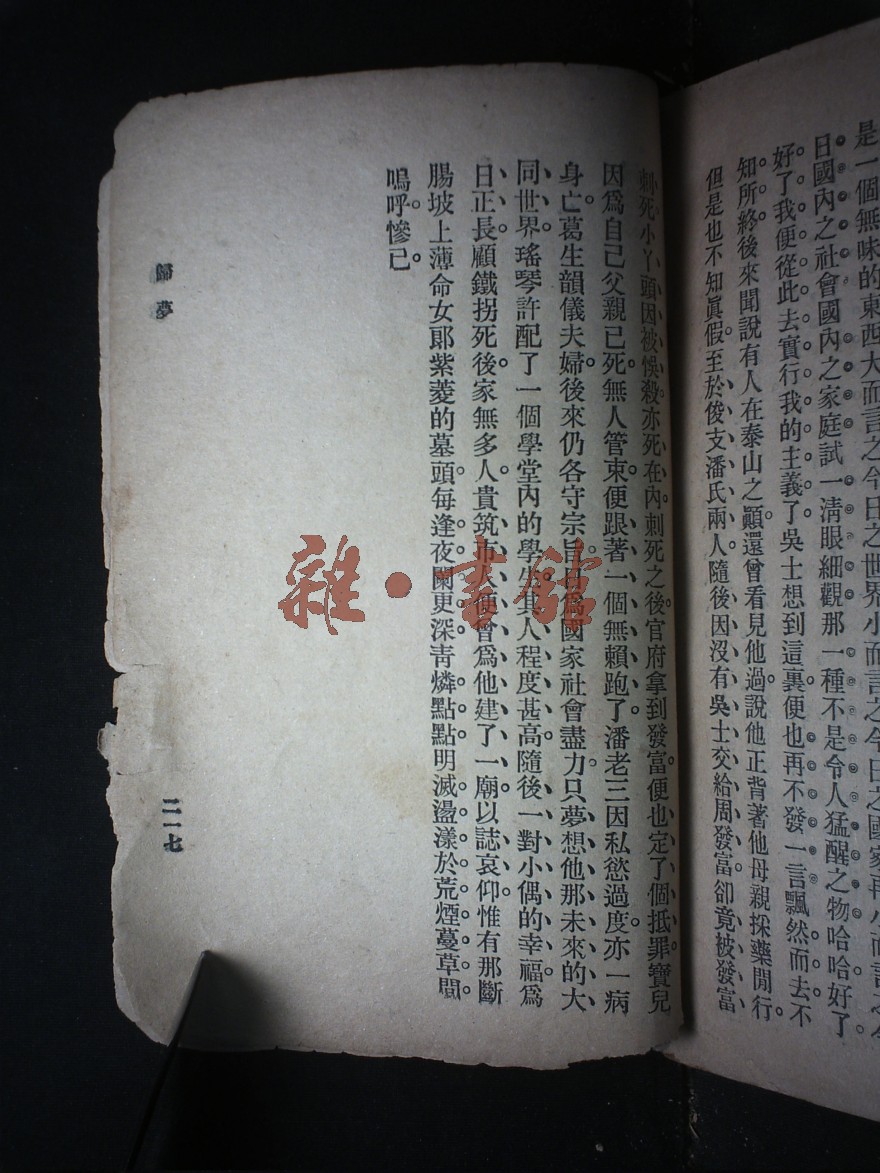 是一個無味的東西大而言之今日之世界小而言之今日之國家再小而言之今
日國內之社會國內之家庭試一清眼細觀那一種不是令人猛醒之物哈哈好了。
好了我便從此去實行我的主義了吳士想到這裏便也再不發一言飄然而去不
知所終後來聞說有人在泰山之顚還曾看見他過說他正背著他母親採藥閒行。
但是也不知眞假。至於俊支潘氏兩人隨後因沒有吳士交給周發富卻竟被發富
刺死小丫頭因被悞殺亦死在內刺死之後官府拿到發富便也定了個抵罪。寶兒
因爲自己父親已死無人管束便跟著一個無賴跑了潘老三因私慾過度亦一病
身亡葛生韻儀夫婦後來仍各守宗旨日爲國家社會盡力只夢想他那未來的大
同世界瑤琴許配了一個學堂內的學生其人程度甚高隨後一對小偶的幸福爲
日正長顧鐵拐死後家無多人貴筑市人便曾爲他建了一廟以誌哀仰惟有那斷
腸坡上薄命女郞紫菱的墓頭每逢夜闌更深靑燐點點明滅盪漾於荒煙蔓草間。
嗚呼慘已。
歸夢
二一七
雜·書館